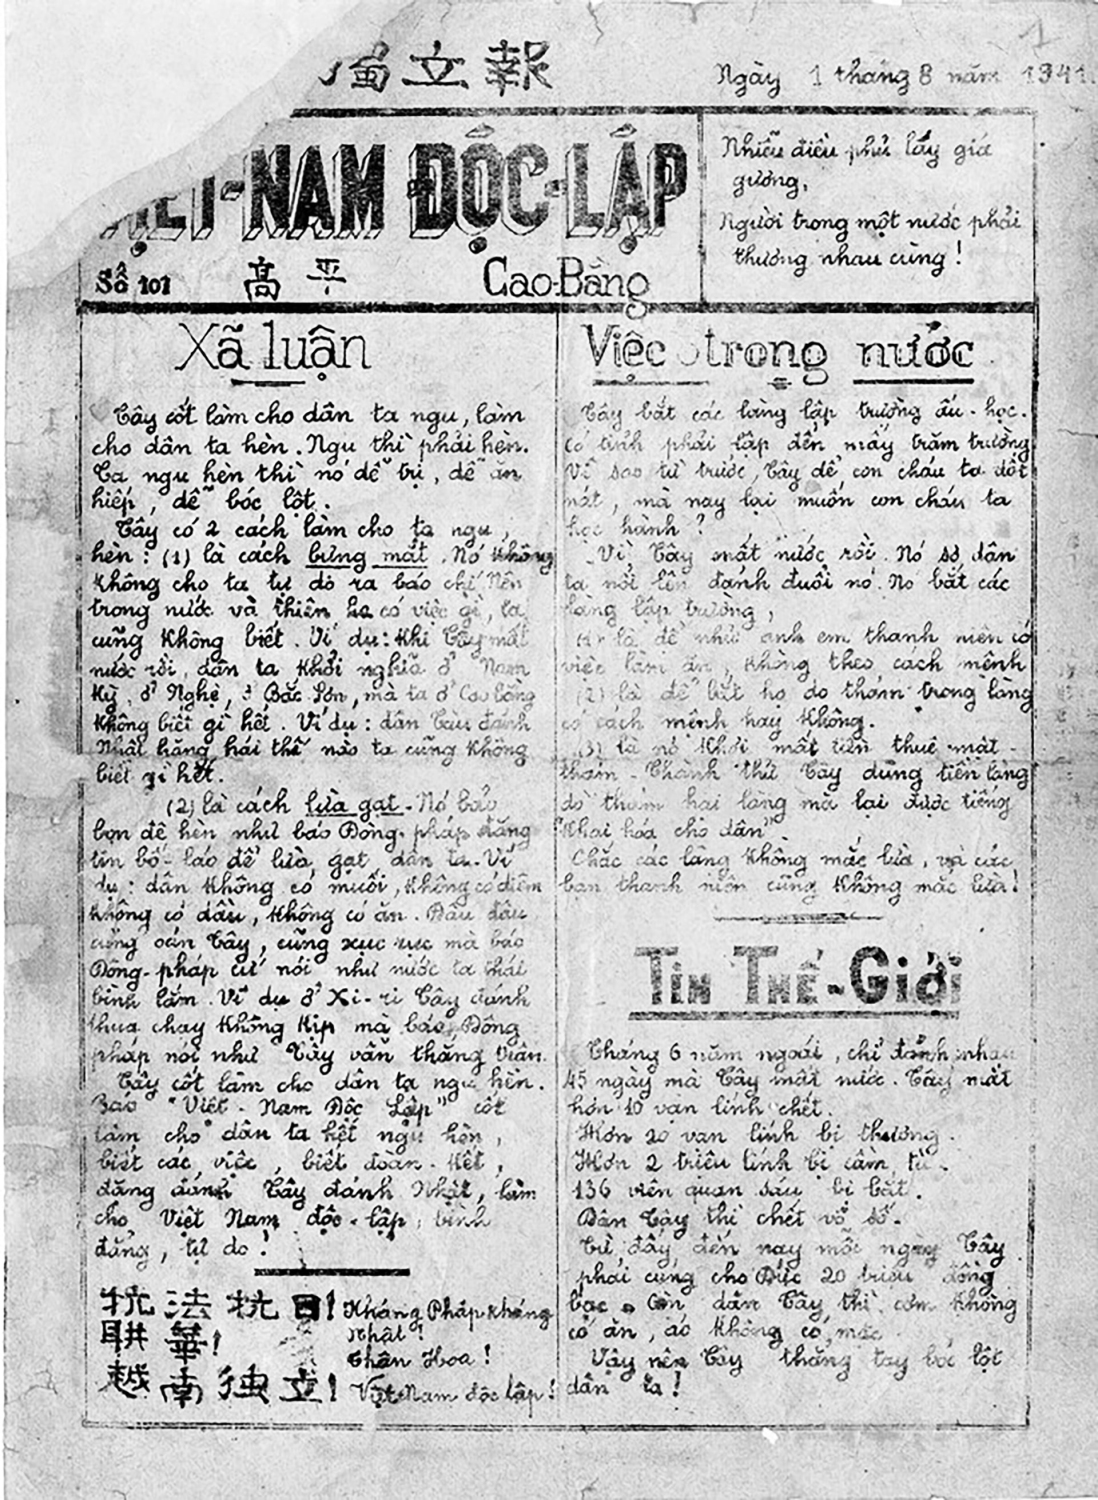 獨立報
Ngày 1 tháng 8 năm 1941
VIỆT-NAM ĐỘC-LẬP
Số 101 高平 Cao-Bằng
Nhiễu điều phủ lấy giá
gương,
Người trong một nước phải
thương nhau cùng!
Xã luận
Tây cốt làm cho dân ta ngu, làm
cho dân ta hèn. Ngu thì phải hèn.
Ta ngu hèn thì nó dễ trị, dễ ăn
hiếp, dễ bóc lột.
Tây có 2 cách làm cho ta ngu
hèn: (1) là cách bưng mắt. Nó không
không cho ta tự do ra báo chí. Nên
trong nước và thiên hạ có việc gì, ta
cũng không biết. Ví dụ: khi Tây mất
nước rồi, dân ta khởi nghĩa ở Nam
Kỳ, ở Nghệ, ở Bắc Sơn, mà ta ở Cao bằng
không biết gì hết. Ví dụ: dân Tàu đánh
Nhật hăng hái thế nào ta cũng không
biết gì hết.
(2) là cách lừa gạt. Nó bảo
bọn đê hèn như báo Đông-pháp đăng
tin bố-láo để lừa gạt dân ta. Ví
dụ: dân không có muối, không có diêm
không có dầu, không có ăn. Đâu đâu
cũng oán Tây, cũng xục xục mà báo
Đông-pháp cứ nói như nước ta thái
bình lắm. Ví dụ ở Xi-ri Tây đánh
thua chạy không kịp mà báo Đông
pháp nói như Tây vẫn thắng
Tây cốt làm cho dân ta ngu hèn.
Báo "Việt-Nam Độc Lập" cốt
làm cho dân ta hết ngu hèn,
biết các việc, biết đoàn-kết,
đặng đánh Tây đánh Nhật, làm
cho Việt Nam độc-lập, bình
đẳng, tự do!
抗法抗日! Kháng Pháp kháng
Nhật!
聯華! Thân Hoa!
越南独立! Việt-Nam độc lập!
Việc trong nước
Tây bắt các làng lập trường ấu-học.
Có tỉnh phải lập đến mấy trăm trường
Vì sao từ trước, Tây để con cháu ta dốt
nát, mà nay lại muốn con cháu ta
học hành?
Vì Tây mất nước rồi. Nó sợ dân
ta nổi lên đánh đuổi nó. Nó bắt các
làng lập trường,
(1) là để nhử anh em thanh niên có
việc làm ăn, không theo cách mệnh
(2) là để bắt họ do thám trong làng
có cách mệnh hay không.
(3) là nó khỏi mất tiền thuê mật-
thám-Thành thử Tây dùng tiền làng
dò thám hại làng mà lại được tiếng
"Khai hóa cho dân".
Chắc các làng không mắc lừa, và các
bạn thanh niên cũng không mắc lừa!
TIN THẾ-GIỚI
Tháng 6 năm ngoái, chỉ đánh nhau
45 ngày mà Tây mất nước. Tây mất
hơn 10 vạn lính chết.
Hơn 20 vạn lính bị thương.
Hơn 2 triệu lính bị cầm tù.
136 viên quan sáu bị bắt.
Dân Tây thì chết vô số.
Từ đấy đến nay mỗi ngày Tây
phải cúng cho Đức 20 triệu đồng
bạc. Còn dân Tây thì cơm không
có ăn, áo không có mặc
Vậy nên Tây thẳng tay bóc lột
dân ta!